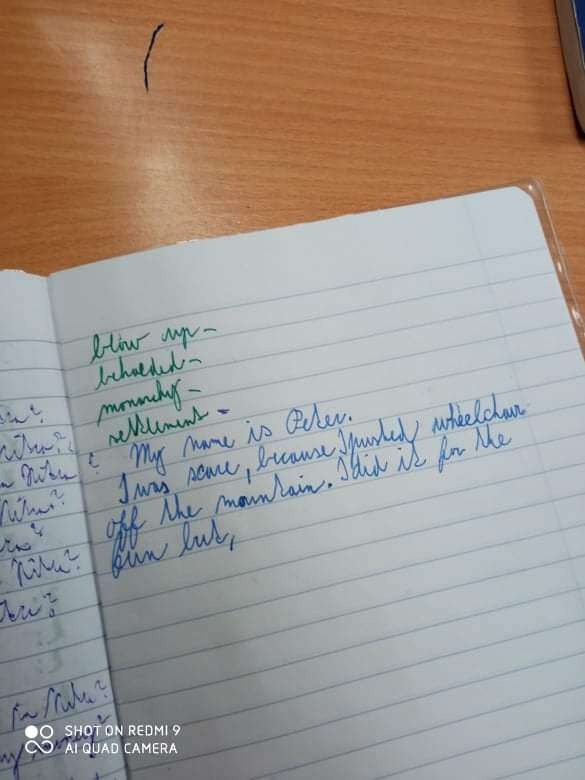 blow up -
beheaded -
monarchy -
settlement -
My name is Peter.
I was scare, because I pushed wheelchair
off the mountain. I did it for the
fun but,
SHOT ON REDMI 9
AI QUAD CAMERA